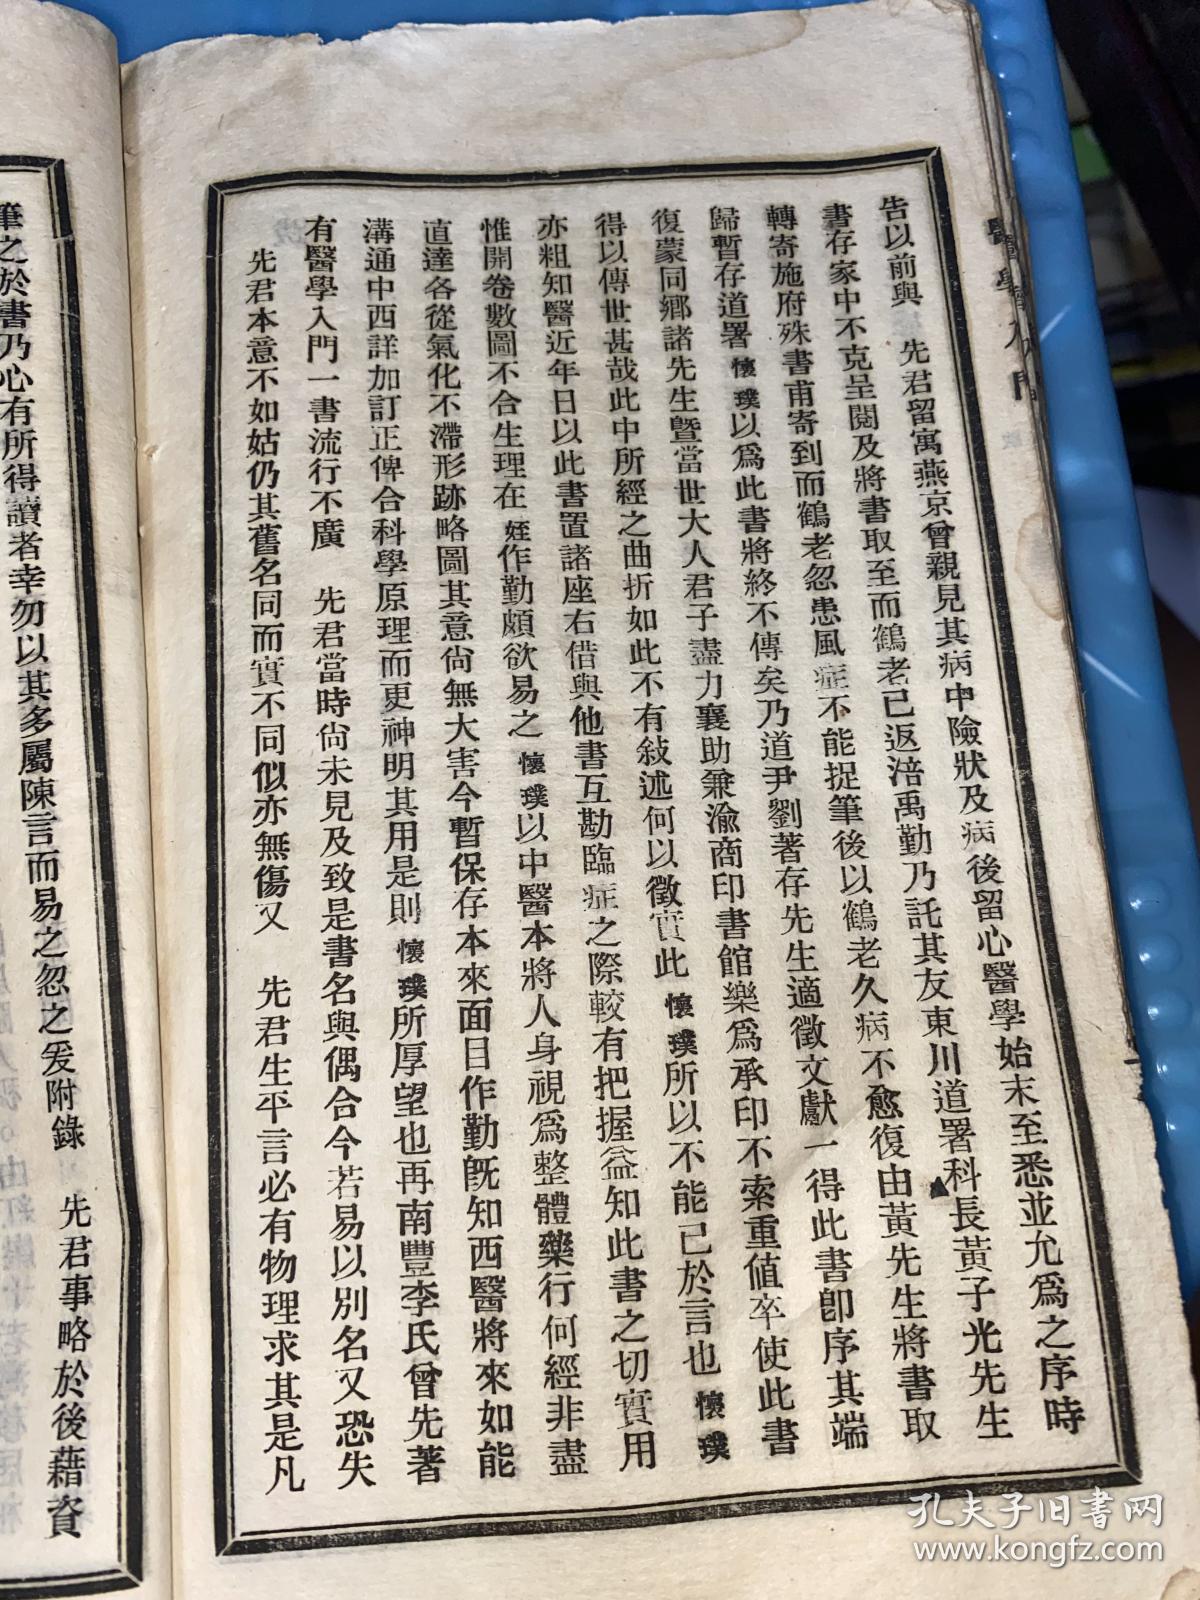 醫學入門
告以前與 先君留寓燕京曾親見其病中險狀及病後留心醫學始末至悉並允爲之序時
書存家中不克呈閱及將書取至而鶴老已返涪禹勤乃託其友東川道署科長黃子光先生
轉寄施府殊書甫寄到而鶴老忽患風症不能捉筆後以鶴老久病不愈復由黃先生將書取
歸暫存道署懷璞以爲此書將終不傳矣乃道尹劉著存先生適徵文獻一得此書卽序其端
復蒙同鄉諸先生暨當世大人君子盡力襄助兼渝商印書館樂爲承印不索重值卒使此書
得以傳世甚哉此中所經之曲折如此不有敍述何以徵實此懷璞所以不能已於言也懷璞
亦粗知醫近年日以此書置諸座右借與他書互勘臨症之際較有把握益知此書之切實用
惟開卷數圖不合生理在姪作勤頗欲易之懷璞以中醫本將人身視爲整體藥行何經非盡
直達各從氣化不滯形跡略圖其意尙無大害今暫保存本來面目作勤旣知西醫將來如能
溝通中西詳加訂正俾合科學原理而更神明其用是則懷璞所厚望也再南豐李氏曾先著
有醫學入門一書流行不廣 先君當時尙未見及致是書名與偶合今若易以別名又恐失
先君本意不如姑仍其舊名同而實不同似亦無傷又 先君生平言必有物理求其是凡
筆之於書乃心有所得讀者幸勿以其多屬陳言而易之忽之爰附錄 先君事略於後藉資
孔夫子旧书网
www.kongfz.com